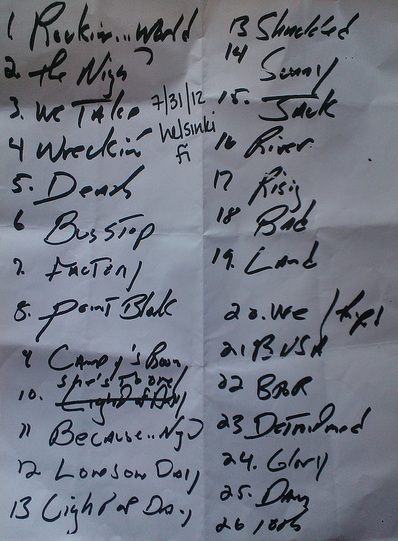 1 Rockin...World
2. the Nigh
3. We Take
7/31/12
Helsinki
fi
4 Wreckin'
5. Death
6 Bus Stop
7. Factory
8. Point Blak
9 Candy's Room
10. she's the one
Light of Day
11 Because..Ngt
12 Lonesom Day
13 Light of Day
13 Shackled
14 Sunny
15. Jack
16 River
17 Risig
18 Bad
19. Land
20. We
21 BUSA
22 BAR
23 Detroit med
24. Glory
25. Day
26 10th